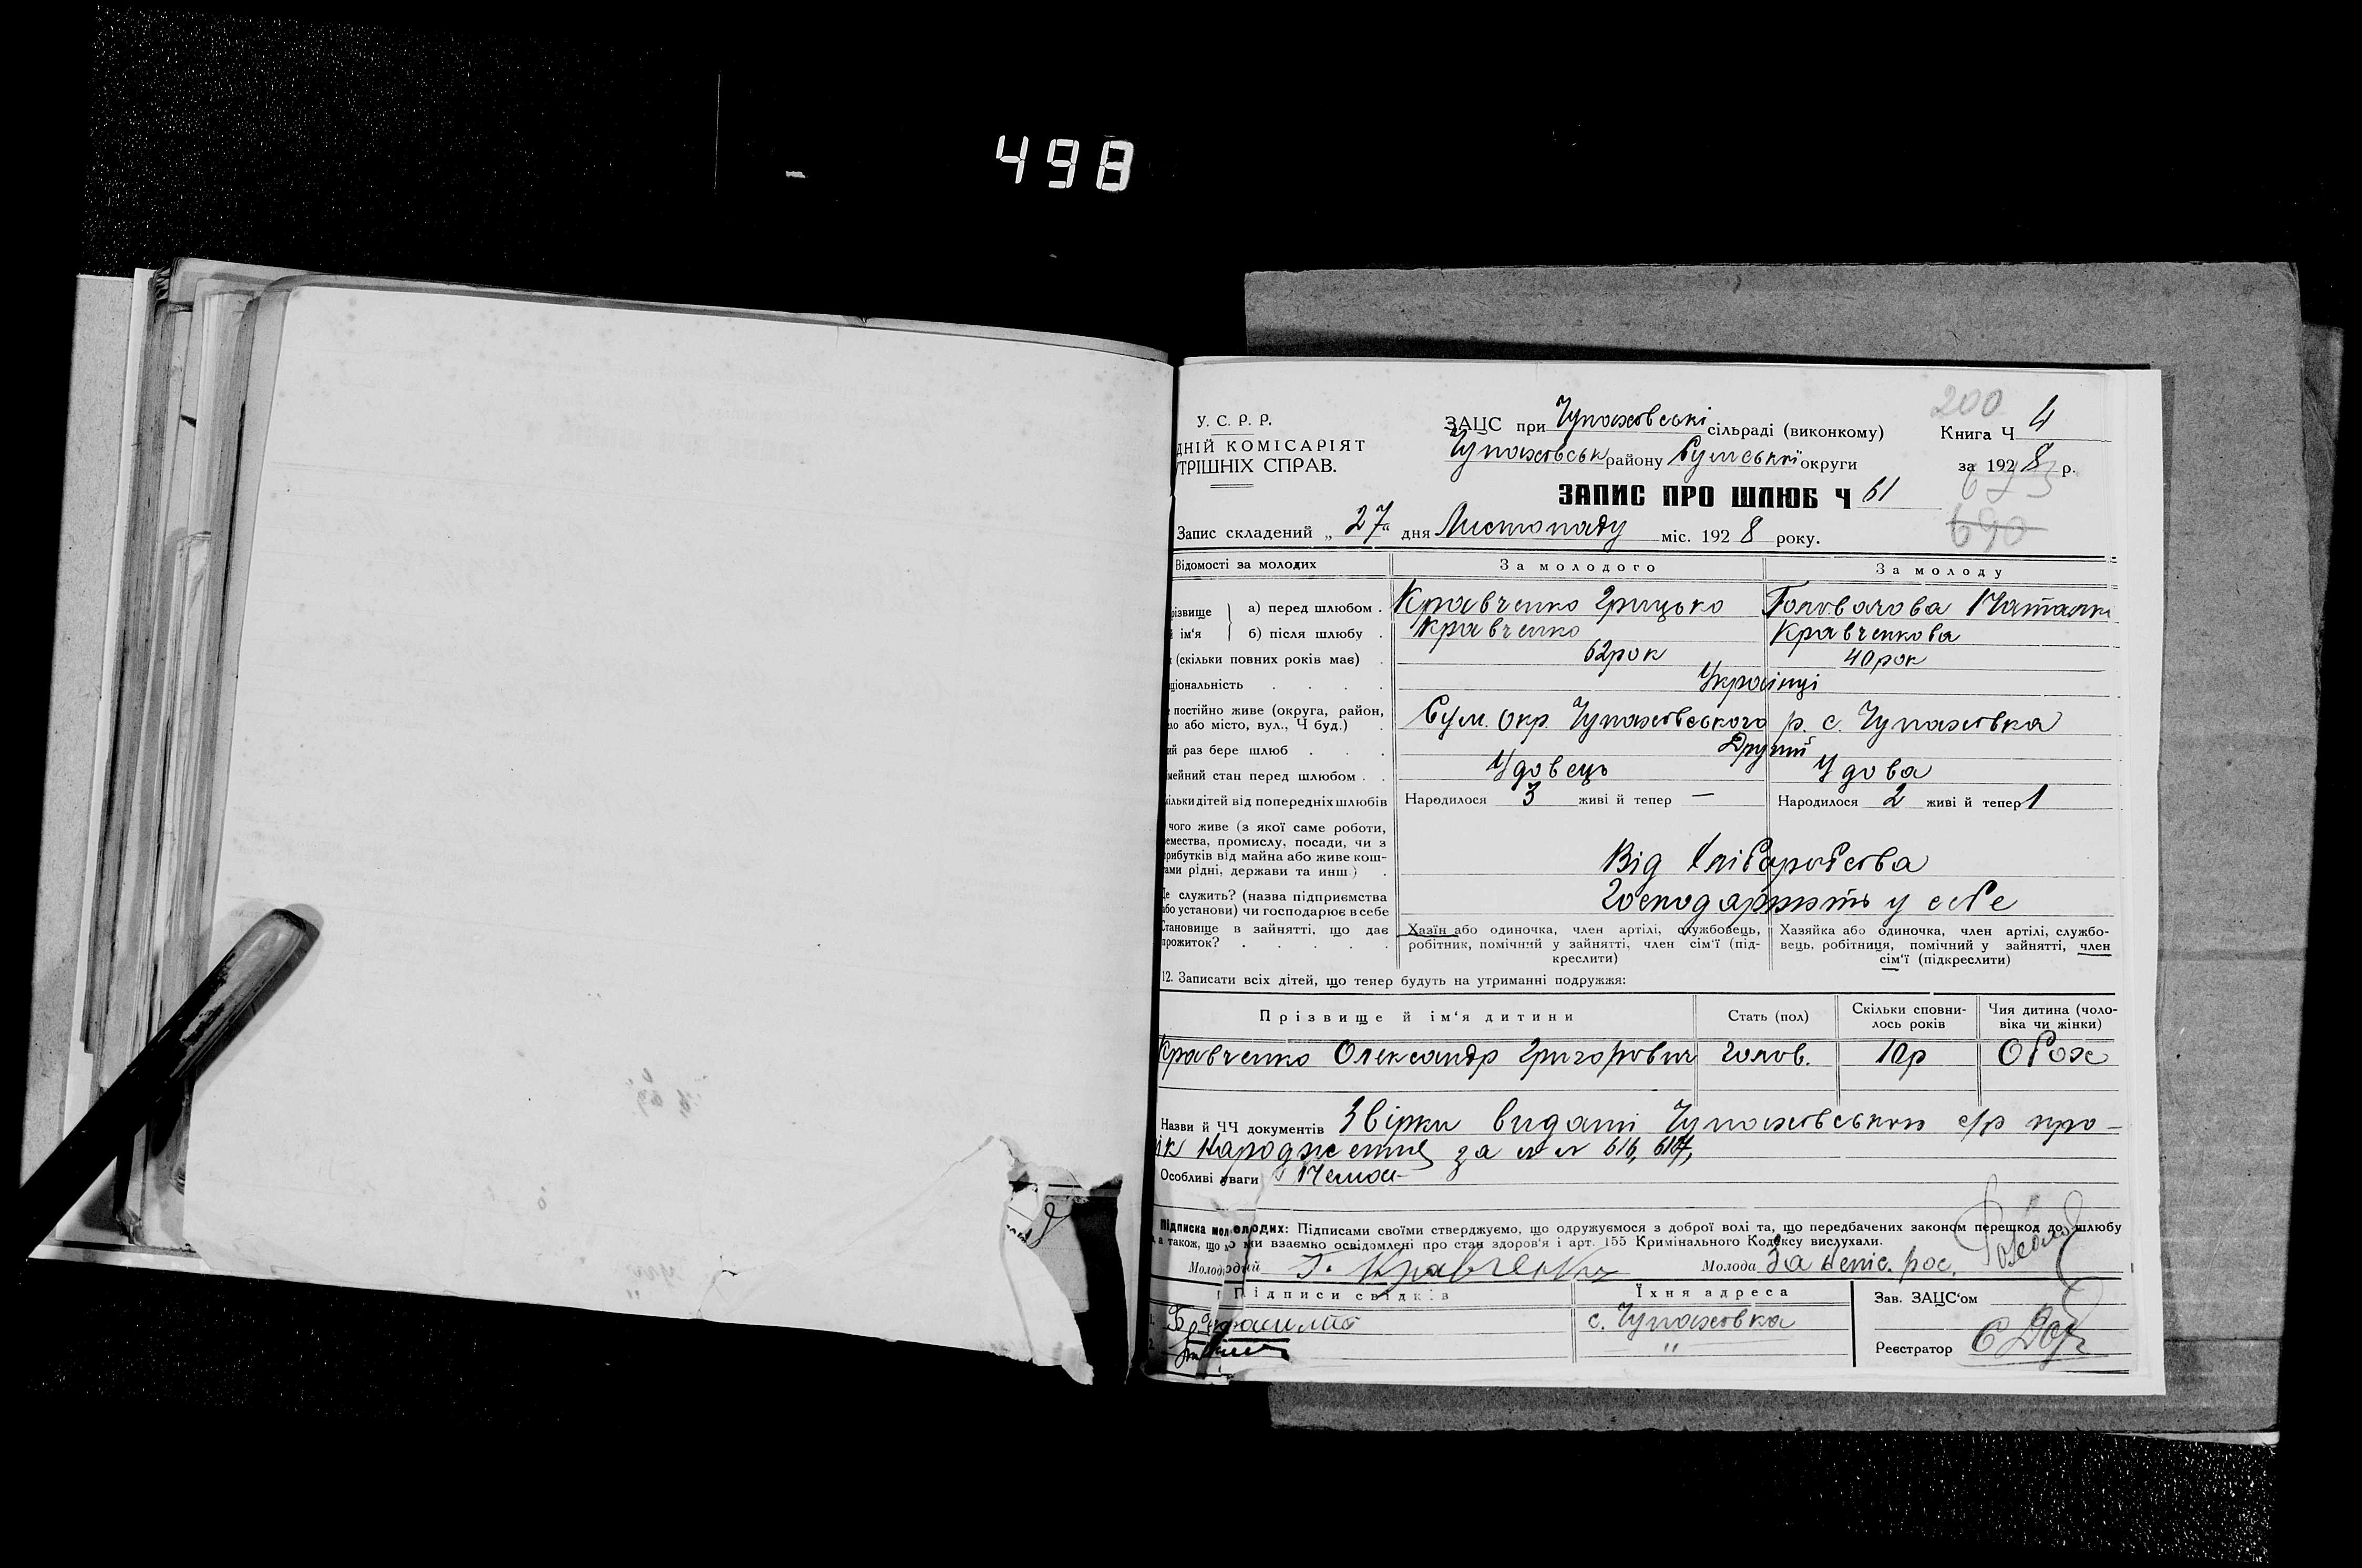 498
200
У. С. Р. Р.
ДНІЙ КОМІСАРІЯТ
ТРІШНІХ СПРАВ.
ЗАЦС при Чупахівські сільраді (виконкому)
Чупахівськ району Сумської округи
Книга Ч 4
за 1928 р.
693
690
ЗАПИС ПРО ШЛЮБ Ч 61
Запис складений „ 27 " дня Листопаду міс. 1928 року.
Відомості за молодих За молодого За молоду
різвище й ім'я а) перед шлюбом . Кравченко Грицько Головачова Наталка
б) після шлюбу . Кравченко Кравченкова
(скільки повних років має) . 62 рок 40 рок
ціональність . . . . Українці
постійно живе (округа, район, ло або місто, вул., Ч буд.) . Сум. Окр. Чупахівського р. с. Чупахівка
ий раз бере шлюб . . . Другий
мейний стан перед шлюбом . . Удовець Удова
ількидітей від попередніх шлюбів Народилося 3 живі й тепер — Народилося 2 живі й тепер 1
чого живе (з якої саме роботи,
емества, промислу, посади, чи з
рибутків від майна або живе кош-
ами рідні, держави та инш.) . Від хліборобства
Де служить? (назва підприємства
або установи) чи господарює в себе Господарюють у себе
Становище в зайнятті, що дає
прожиток? . . . . .
Хазїн або одиночка, член артілі, службовець,
робітник, помічний у зайнятті, член сім'ї (під-
креслити)
Хазяйка або одиночка, член артілі, службо-
вець, робітниця, помічний у зайнятті, член
сім'ї (підкреслити)
12. Записати всіх дітей, що тепер будуть на утриманні подружжя:
Прізвище й ім'я дитини Стать (пол) Скільки сповни-
лось років Чия дитина (чоло-
віка чи жінки)
Кравченко Олександр Григорович чолов. 10р Обох
Назви й ЧЧ документів Звірки видані Чупахівською с/р про-
ік народження за № № 616, 617,
Особливі уваги Немає
Підписка молодих: Підписами своїми стверджуємо, що одружуємося з доброї волі та, що передбачених законом перешкод до шлюбу
а також, що ми взаємно освідомлені про стан здоров'я і арт. 155 Кримінального Кодексу вислухали.
Молодий Г. Кравченко Молода За непис. рос.
Підписи свідків Їхня адреса
1. с. Чупахівка
2. "
Зав. ЗАЦС'ом
Реєстратор